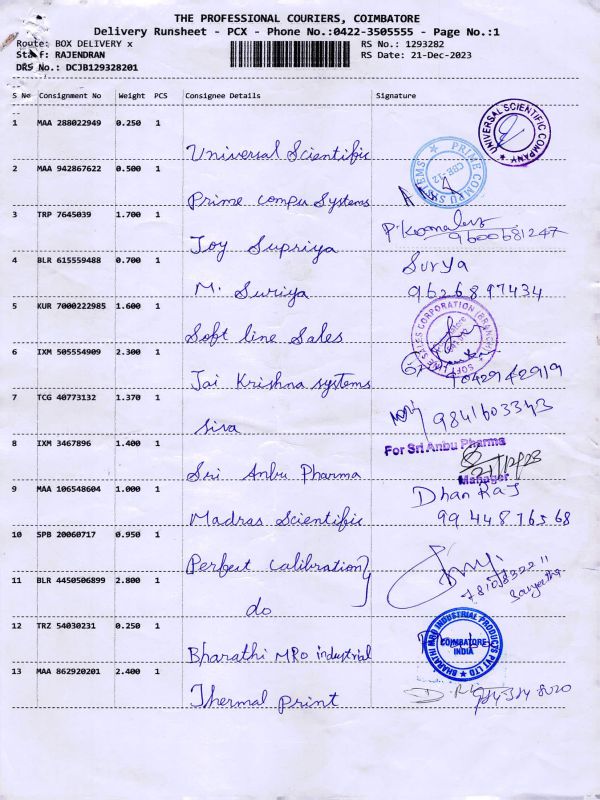 THE PROFESSIONAL COURIERS, COIMBATORE
Delivery Runsheet - PCX - Phone No.:0422-3505555 - Page No.:1
Route: BOX DELIVERY x RS No.: 1293282
Staff: RAJENDRAN RS Date: 21-Dec-2023
DRS No.: DCJB129328201
S No Consignment No Weight PCS Consignee Details Signature
1 MAA 288022949 0.250 1
Universal Scientific
UNIVERSAL SCIENTIFIC COMPANY
2 MAA 942867622 0.500 1
Prime compu Systems
PRIME COMPU SYSTEMS
CBE-12
3 TRP 7645039 1.700 1
Joy Supriya
9600681247
4 BLR 615559488 0.700 1
M. Suriya
Surya
9626897434
5 KUR 7000222985 1.600 1
Soft line Sales
SOFT LINE SALES CORPORATION (BRANCH)
6 IXM 505554909 2.300 1
Jai Krishna systems
7 TCG 40773132 1.370 1
Siva
9841603343
8 IXM 3467896 1.400 1
Sri Anbu Pharma
For Sri Anbu Pharma
21/12/23
Manager
9 MAA 106548604 1.000 1
Madras Scientific
Dhan Raj
99448 76568
10 SPB 20060717 0.950 1
Perfect Calibration
11 BLR 4450506899 2.800 1
do
Sangeetha
12 TRZ 54030231 0.250 1
Bharathi MRO industrial
BHARATHI MRO INDUSTRIAL PRODUCTS PVT LTD
COIMBATORE
INDIA
13 MAA 862920201 2.400 1
Thermal print